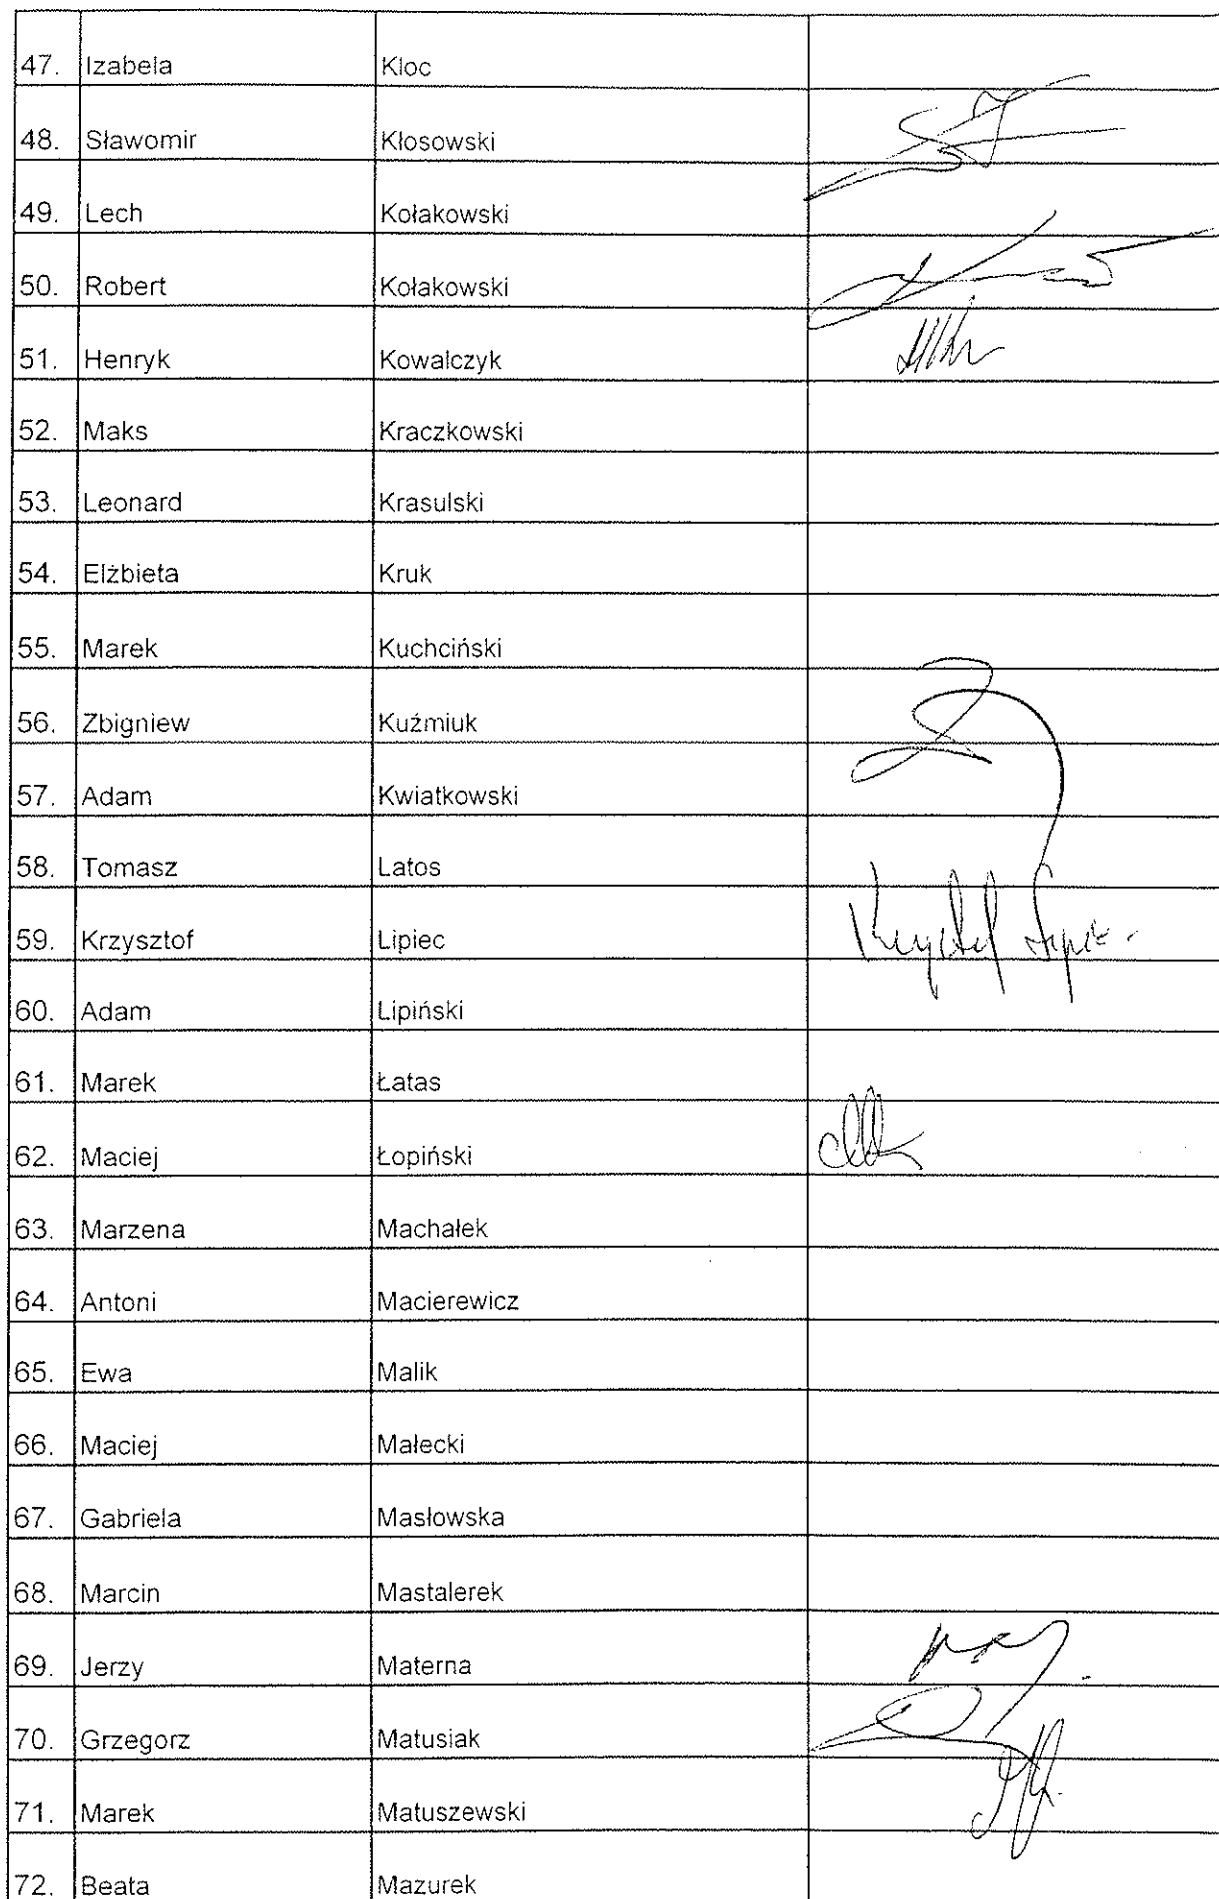 47. Izabela Kloc
48. Sławomir Kłosowski
49. Lech Kołakowski
50. Robert Kołakowski
51. Henryk Kowalczyk
52. Maks Kraczkowski
53. Leonard Krasulski
54. Elżbieta Kruk
55. Marek Kuchciński
56. Zbigniew Kuźmiuk
57. Adam Kwiatkowski
58. Tomasz Latos
59. Krzysztof Lipiec Krzysztof Lipiec
60. Adam Lipiński
61. Marek Łatas
62. Maciej Łopiński
63. Marzena Machałek
64. Antoni Macierewicz
65. Ewa Malik
66. Maciej Małecki
67. Gabriela Masłowska
68. Marcin Mastalerek
69. Jerzy Materna
70. Grzegorz Matusiak
71. Marek Matuszewski
72. Beata Mazurek